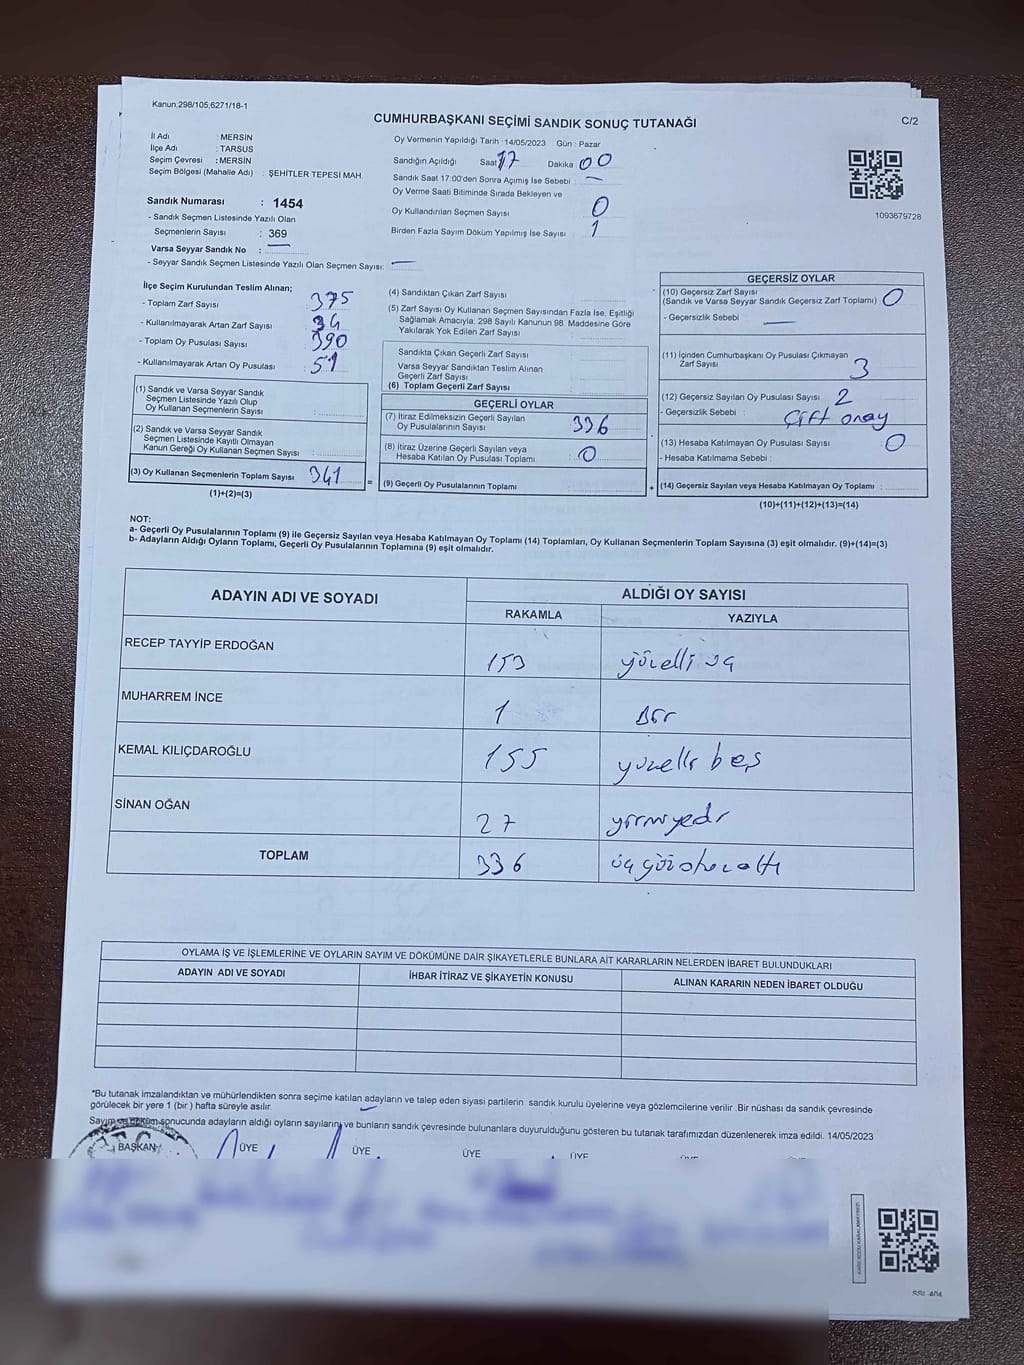 Kanun;298/105,6271/18-1
CUMHURBAŞKANI SEÇİMİ SANDIK SONUÇ TUTANAĞI
C/2
İl Adı : MERSİN
İlçe Adı : TARSUS
Seçim Çevresi : MERSİN
Seçim Bölgesi (Mahalle Adı) : ŞEHİTLER TEPESİ MAH.
Oy Vermenin Yapıldığı Tarih : 14/05/2023 Gün : Pazar
Sandığın Açıldığı Saat 17 Dakika 00
Sandık Saat 17:00'den Sonra Açımış İse Sebebi : —
Oy Verme Saati Bitiminde Sırada Bekleyen ve
Oy Kullandırılan Seçmen Sayısı 0
Birden Fazla Sayım Döküm Yapılmış İse Sayısı 1
1093679728
Sandık Numarası : 1454
- Sandık Seçmen Listesinde Yazılı Olan
Seçmenlerin Sayısı : 369
Varsa Seyyar Sandık No : —
- Seyyar Sandık Seçmen Listesinde Yazılı Olan Seçmen Sayısı: —
İlçe Seçim Kurulundan Teslim Alınan;
- Toplam Zarf Sayısı : 375
- Kullanılmayarak Artan Zarf Sayısı : 34
- Toplam Oy Pusulası Sayısı : 390
- Kullanılmayarak Artan Oy Pusulası : 51
(1) Sandık ve Varsa Seyyar Sandık
Seçmen Listesinde Yazılı Olup
Oy Kullanan Seçmenlerin Sayısı :
(2) Sandık ve Varsa Seyyar Sandık
Seçmen Listesinde Kayıtlı Olmayan
Kanun Gereği Oy Kullanan Seçmen Sayısı :
(3) Oy Kullanan Seçmenlerin Toplam Sayısı : 341
(1)+(2)=(3)
=
(4) Sandıktan Çıkan Zarf Sayısı :
(5) Zarf Sayısı Oy Kullanan Seçmen Sayısından Fazla İse, Eşitliği
Sağlamak Amacıyla; 298 Sayılı Kanunun 98. Maddesine Göre
Yakılarak Yok Edilen Zarf Sayısı :
Sandıkta Çıkan Geçerli Zarf Sayısı :
Varsa Seyyar Sandıktan Teslim Alınan
Geçerli Zarf Sayısı :
(6) Toplam Geçerli Zarf Sayısı :
GEÇERLİ OYLAR
(7) İtiraz Edilmeksizin Geçerli Sayılan
Oy Pusulalarının Sayısı : 336
(8) İtiraz Üzerine Geçerli Sayılan veya
Hesaba Katılan Oy Pusulası Toplamı : 0
(9) Geçerli Oy Pusulalarının Toplamı :
+
GEÇERSİZ OYLAR
(10) Geçersiz Zarf Sayısı
(Sandık ve Varsa Seyyar Sandık Geçersiz Zarf Toplamı) : 0
- Geçersizlik Sebebi : —
(11) İçinden Cumhurbaşkanı Oy Pusulası Çıkmayan
Zarf Sayısı : 3
(12) Geçersiz Sayılan Oy Pusulası Sayısı : 2
- Geçersizlik Sebebi : Çift onay
(13) Hesaba Katılmayan Oy Pusulası Sayısı : 0
- Hesaba Katılmama Sebebi :
(14) Geçersiz Sayılan veya Hesaba Katılmayan Oy Toplamı :
(10)+(11)+(12)+(13)=(14)
NOT:
a- Geçerli Oy Pusulalarının Toplamı (9) ile Geçersiz Sayılan veya Hesaba Katılmayan Oy Toplamı (14) Toplamları, Oy Kullanan Seçmenlerin Toplam Sayısına (3) eşit olmalıdır. (9)+(14)=(3)
b- Adayların Aldığı Oyların Toplamı, Geçerli Oy Pusulalarının Toplamına (9) eşit olmalıdır.
ADAYIN ADI VE SOYADI
ALDIĞI OY SAYISI
RAKAMLA YAZIYLA
RECEP TAYYİP ERDOĞAN 153 yüzelli üç
MUHARREM İNCE 1 Bir
KEMAL KILIÇDAROĞLU 155 yüzelli beş
SİNAN OĞAN 27 yirmiyedi
TOPLAM 336 üçyüzotuzaltı
OYLAMA İŞ VE İŞLEMLERİNE VE OYLARIN SAYIM VE DÖKÜMÜNE DAİR ŞİKAYETLERLE BUNLARA AİT KARARLARIN NELERDEN İBARET BULUNDUKLARI
ADAYIN ADI VE SOYADI İHBAR İTİRAZ VE ŞİKAYETİN KONUSU ALINAN KARARIN NEDEN İBARET OLDUĞU
*Bu tutanak imzalandıktan ve mühürlendikten sonra seçime katılan adayların ve talep eden siyasi partilerin sandık kurulu üyelerine veya gözlemcilerine verilir .Bir nüshası da sandık çevresinde
görülecek bir yere 1 (bir ) hafta süreyle asılır.
Sayım ve döküm sonucunda adayların aldığı oyların sayılarını ve bunların sandık çevresinde bulunanlara duyurulduğunu gösteren bu tutanak tarafımızdan düzenlenerek imza edildi. 14/05/2023
BAŞKAN ÜYE ÜYE ÜYE ÜYE